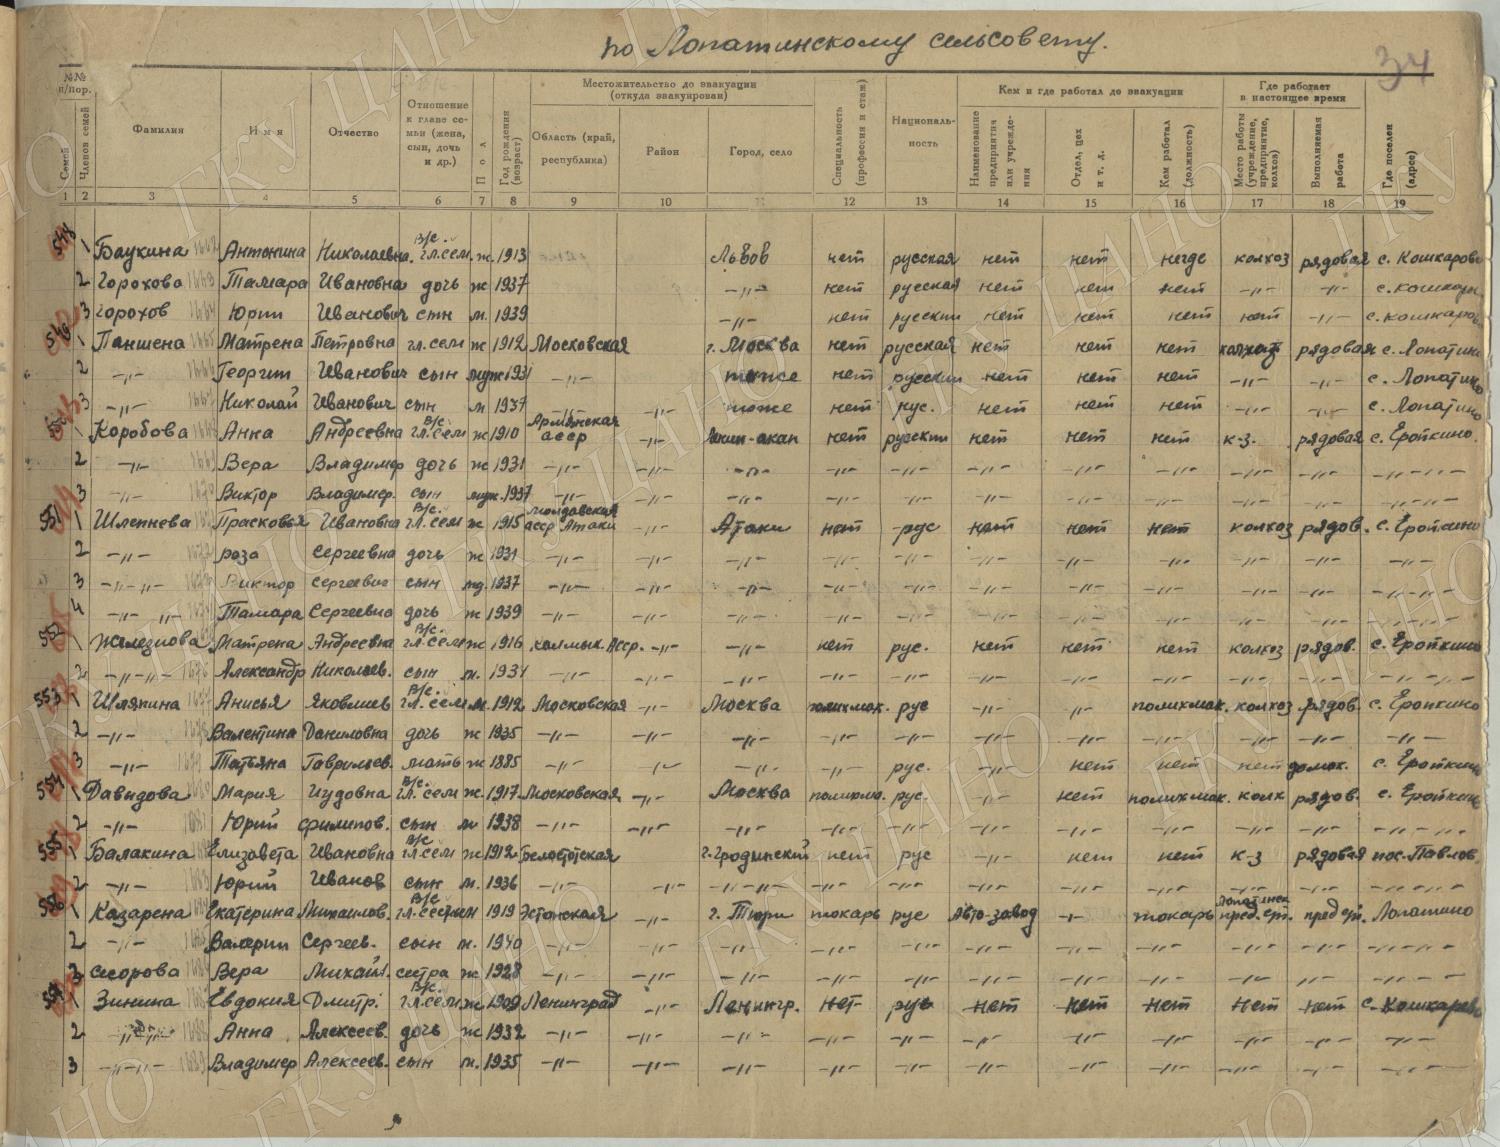 по Лопатинскому сельсовету.
34
№№ п/пор. Фамилия Имя Отчество Отношение к главе семьи (жена, сын, дочь и др.) Пол Год рождения (возраст) Местожительство до эвакуации (откуда эвакуирован) Специальность (профессия и стаж) Националь-ность Кем и где работал до эвакуации Где работает в настоящее время Где поселен (адрес)
Семей Членов семей Область (край, республика) Район Город, село Наименование предприятия или учрежде-ния Отдел, цех и т. д. Кем работал (должность) Место работы (учреждение, предприятие, колхоз) Выполняемая работа
1 2 3 4 5 6 7 8 9 10 11 12 13 14 15 16 17 18 19
1 Баукина Антонина Николаевна В/с. гл.сем. ж. 1913 Львов нет русская нет нет негде колхоз рядовая с. Кошкарово
2 Горохова Тамара Ивановна дочь ж 1937 -"- нет русская нет нет нет -"- -"-
3 Горохов Юрий Иванович сын м. 1939 -"- нет русский нет нет нет нет -"- с. Кошкаров
1 Паншена Матрена Петровна гл. сем ж 1912 Московская г. Москва нет русская нет нет нет колхоз рядовая с. Лопатино
2 -"- Георгий Иванович сын муж 1931 -"- тоже нет русский нет нет нет -"- -"- с. Лопатино
3 -"- Николай Иванович сын м 1937 -"- -"- тоже нет рус. нет нет нет -"- -"- с. Лопатино
1 Коробова Анна Андреевна В/с. гл.сем ж 1910 Армянская асср -"- нет русский нет нет нет к-з. рядовая с. Еропкино.
2 -"- Вера Владимир дочь ж 1931 -"- -"- -"- -"- -"- -"- -"- -"- -"- -"- -"-
3 -"- Виктор Владимер. сын муж. 1937 -"- -"- -"- -"- -"- -"- -"- -"- -"- -"- -"-
551 1 Шлепнева Прасковья Ивановна В/с. гл. сем ж 1915 Молдавская асср Атаки -"- Атаки нет рус нет нет нет колхоз рядов. с. Еропкино
2 -"- роза Сергеевна дочь ж 1931 -"- -"- -"- -"- -"- -"- -"- -"- -"- -"- -"-
3 -"-"- Виктор Сергеевич сын 1937 -"- -"- -"- -"- -"- -"- -"- -"- -"- -"- -"-
4 -"- "- Тамара Сергеевна дочь ж 1939 -"- -"- -"- -"- -"- -"- -"- -"- -"- -"- -"-
552 1 Железнова Матрена Андреевна В/с. гл.сем ж 1916 калмык. Асср. -"- -"- нет рус. нет нет нет колхоз рядов. с. Еропкино
2 -"-"- Александр Николаев. сын м. 1934 -"- -"- -"- -"- -"- -"- -"- -"- -"- -"-
553 1 Шляпина Анисья Яковлев В/с. гл. сем м. 1912 Московская -"- Москва рус -"- -"- колхоз рядов. с. Еропкино
2 -"- Валентина Даниловна дочь ж 1935 -"- -"- -"- -"- -"- -"- -"- -"- -"- -"- -"-
3 -"- Татьяна Гаврилов. мать ж 1885 -"- -"- -"- -"- рус. -"- нет нет нет домох. с. Еропкино
554 1 Давидова Мария Иудовна В/с. гл. сем ж. 1917 Московская -"- Москва рус. -"- нет колх рядов. с. Еропкин
2 -"- Юрий Филипов. сын м 1938 -"- -"- -"- -"- -"- -"- -"- -"- -"- -"- -"-
555 1 Балакина Елизавета Ивановна В/с гл. сем ж 1912 Белостотская г. Гродинский нет рус -"- нет нет к-з рядовая пос. Павлов.
2 -"- Юрий Иванов сын м. 1936 -"- -"- -"-"- -"- -"- -"- -"- -"- -"- -"- -"-
556 1 Казарена Екатерина Михаилов. В/с гл. сем 1919 Эстонская -"- г. Тюри токарь рус Авто-завод -"- токарь Лопатинск пред.ст. пред ст. Лопатино
2 -"- Валерий Сергеев. сын м. 1940 -"- -"- -"- -"- -"- -"- -"- -"- -"- -"- -"-
3 Вера Михайл. сестра ж 1928 -"- -"- -"- -"- -"- -"- -"- -"- -"- -"- -"-
557 1 Зинина Евдокия Дмитр. В/с. гл. сем ж 1909 Ленинград -"- Ленингр. нет рус нет нет нет нет нет с. Кошкарев
2 Анна Алексеев. дочь ж 1932 -"- -"- -"- -"- -"- -"- -"- -"- -"- -"-
3 -"-"- Владимер Алексеев. сын м. 1935 -"- -"- -"- -"- -"- -"- -"- -"- -"- -"- -"-
ГКУ ЦАНО